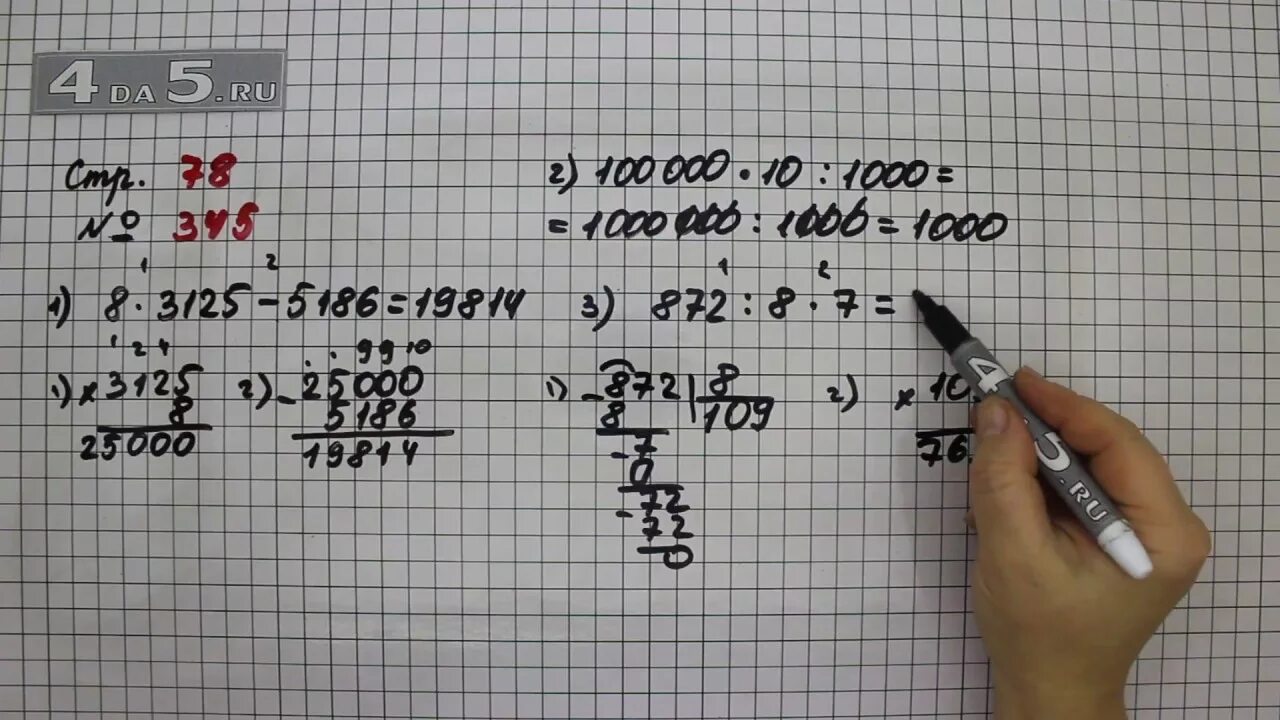 4DA5.RU
Стр. 78
№ 345
1 2
1) 8 · 3125 - 5186 = 19814
1 2 4
1) × 3125
8
25000
. . 9 9 10
2) - 25000
5186
19814
2) 100 000 · 10 : 1000 =
= 1000 000 : 1000 = 1000
1 2
3) 872 : 8 · 7 =
1) - 872 | 8
8 109
- 7
0
- 72
72
0
2) × 10
76
4 5.RU